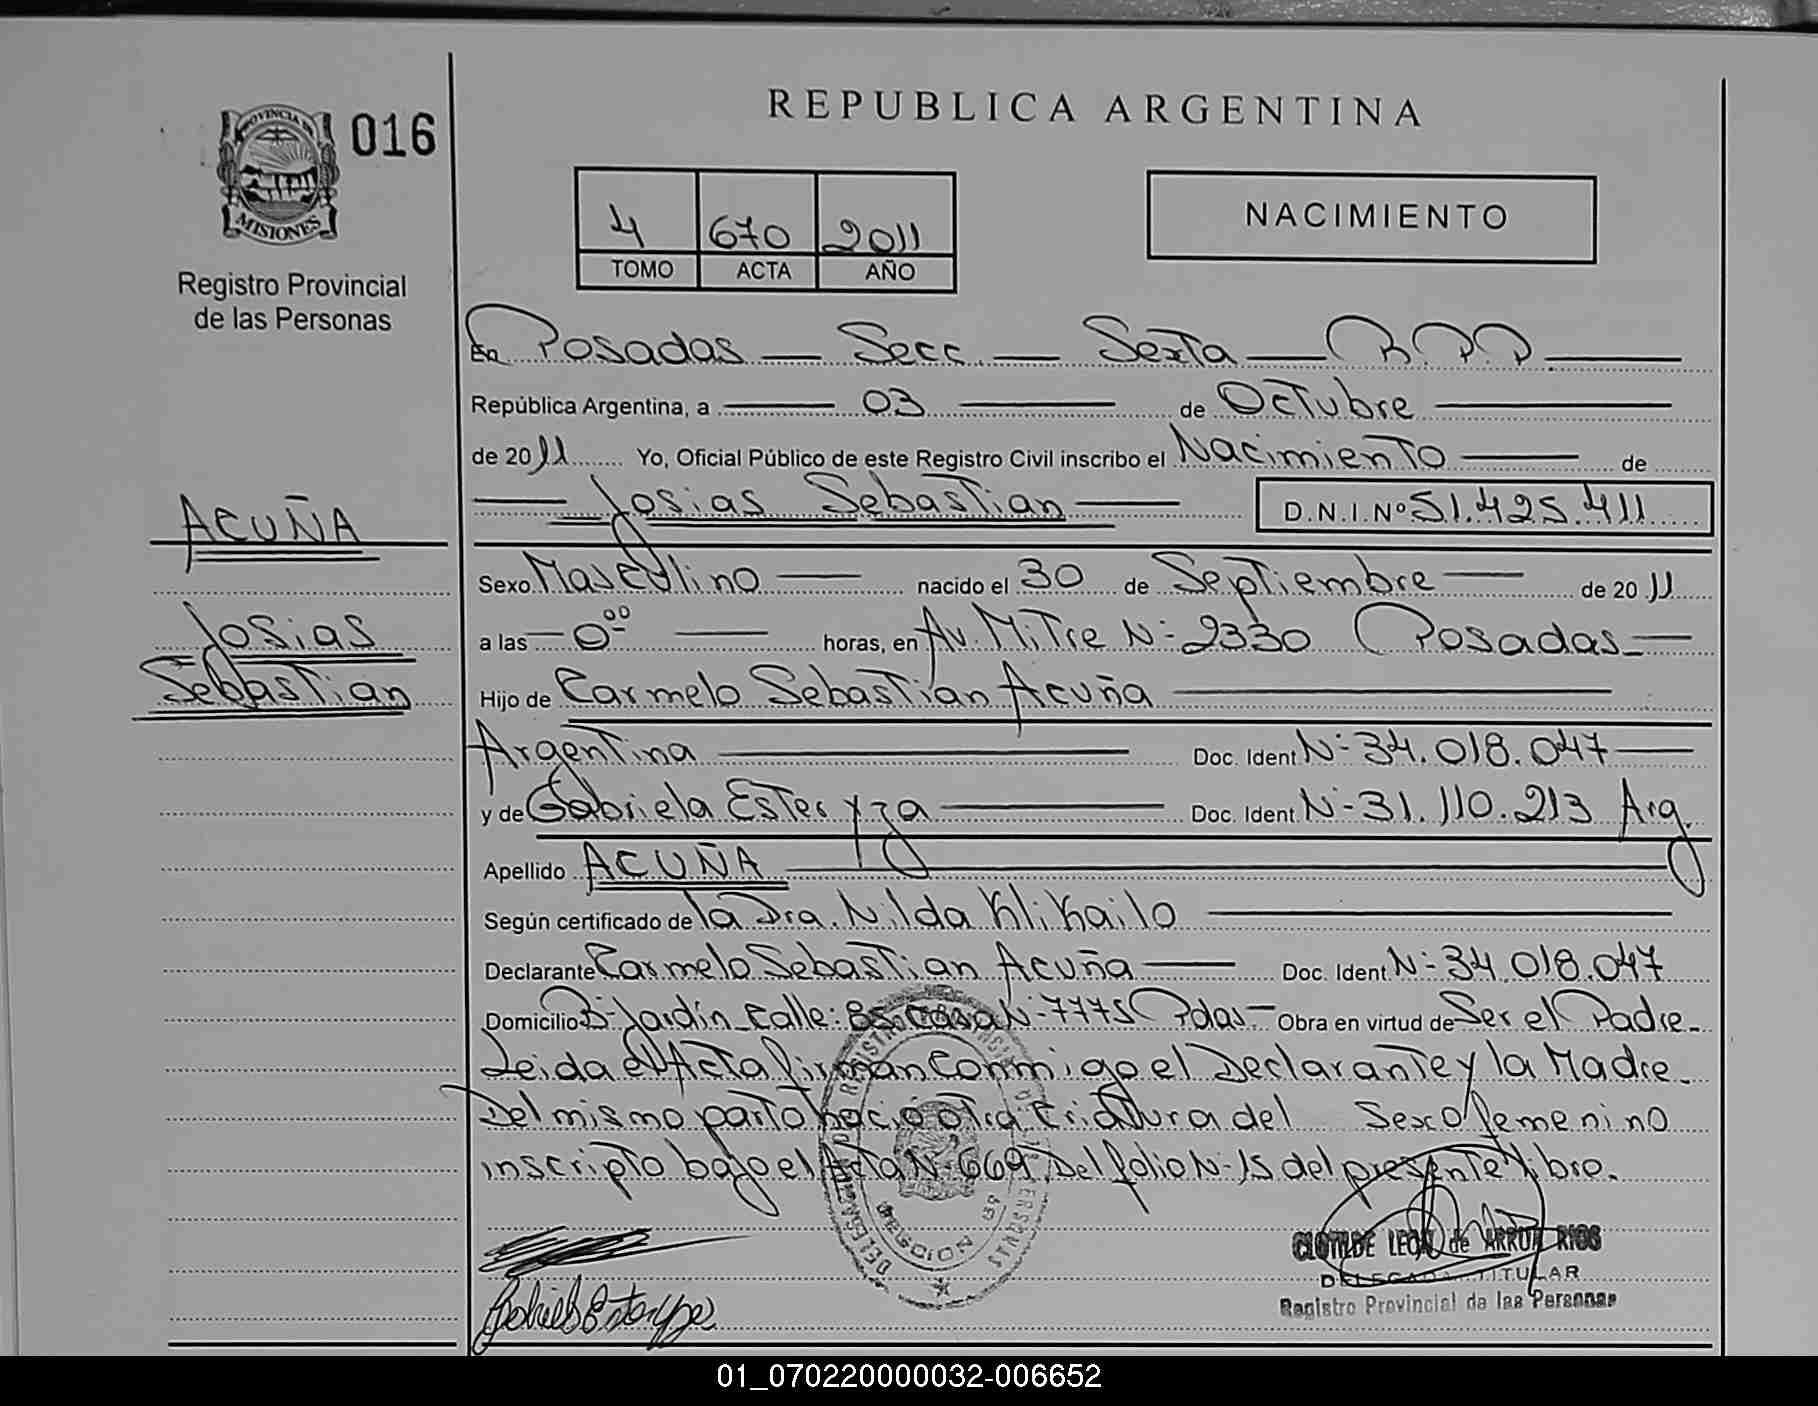 REPUBLICA ARGENTINA
PROVINCIA DE
MISIONES
016
Registro Provincial
de las Personas
4 670 2011
TOMO ACTA AÑO
NACIMIENTO
En Posadas — Secc. — Sexta — R.P.P. —
República Argentina, a — 03 — de Octubre —
de 2011 Yo, Oficial Público de este Registro Civil inscribo el Nacimiento — de
— Josias Sebastian — D.N.I.Nº 51.425.411
ACUÑA
Sexo Masculino — nacido el 30 de Septiembre — de 2011
Josias
a las — 0⁰⁰ — horas, en Av. Mitre N- 2330 Posadas —
Sebastian
Hijo de Carmelo Sebastian Acuña —
Argentina — Doc. Ident N- 34.018.047 —
y de Gabriela Ester Yza — Doc. Ident N- 31.110.213 Arg.
Apellido ACUÑA —
Según certificado de la Dra. Nilda Klikailo —
Declarante Carmelo Sebastian Acuña — Doc. Ident N- 34.018.047
Domicilio B- Jardín Calle: 85 Casa N- 7775 Pdas — Obra en virtud de Ser el Padre.
Leida el Acta firman conmigo el Declarante y la Madre.
Del mismo parto nació otra Criatura del Sexo femenino
inscripto bajo el Acta N- 669 Del folio N- 15 del presente libro.
CLOTILDE LEON de ARRUA RIOS
DELEGADA TITULAR
Registro Provincial de las Personas
01_070220000032-006652